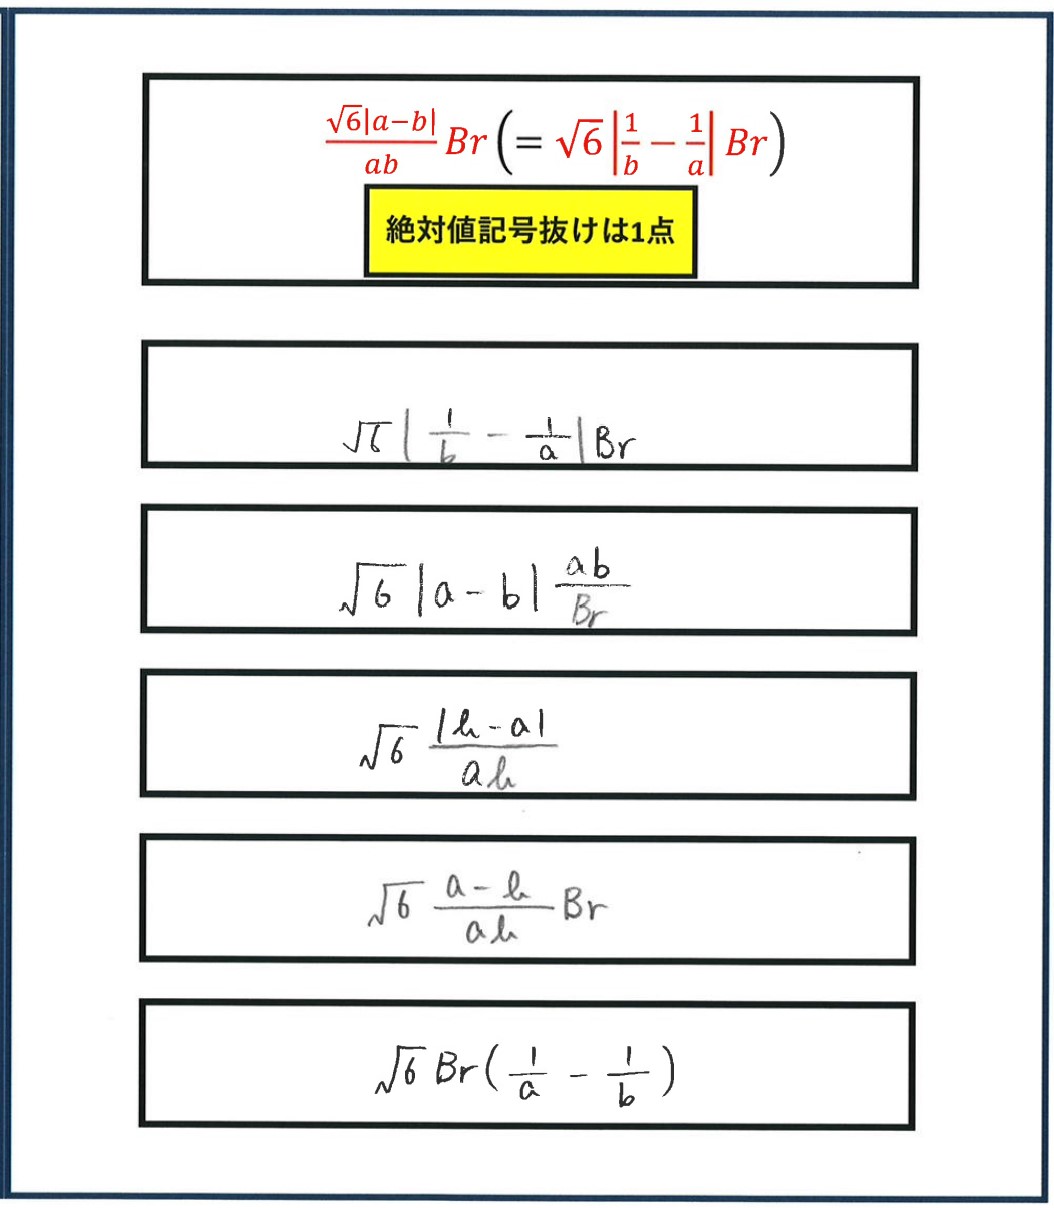 $\frac{\sqrt{6}|a-b|}{ab} Br \left(= \sqrt{6} \left|\frac{1}{b} - \frac{1}{a}\right| Br\right)$
絶対値記号抜けは1点
$\sqrt{6} \left|\frac{1}{b} - \frac{1}{a}\right| Br$
$\sqrt{6} |a-b| \frac{ab}{Br}$
$\sqrt{6} \frac{|b-a|}{ab}$
$\sqrt{6} \frac{a-b}{ab} Br$
$\sqrt{6} Br \left(\frac{1}{a} - \frac{1}{b}\right)$